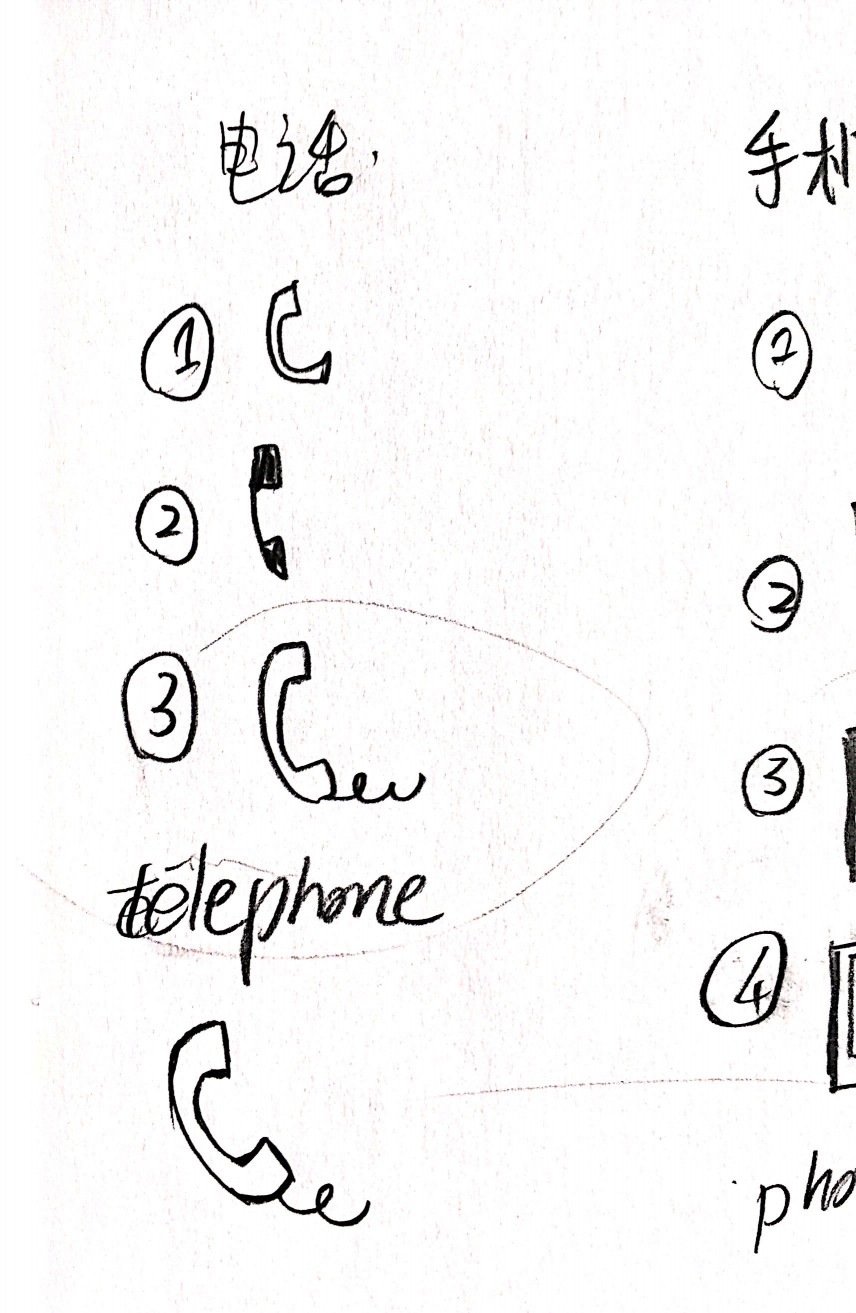 电话
手机
①
①
②
②
③
③
telephone
④
pho